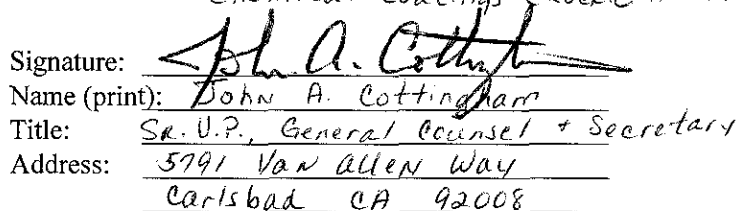 Chemical Coatings
Signature: John A. Cottingham
Name (print): John A. Cottingham
Title: SR. V.P., General Counsel + Secretary
Address: 5791 Van Allen Way
Carlsbad CA 92008